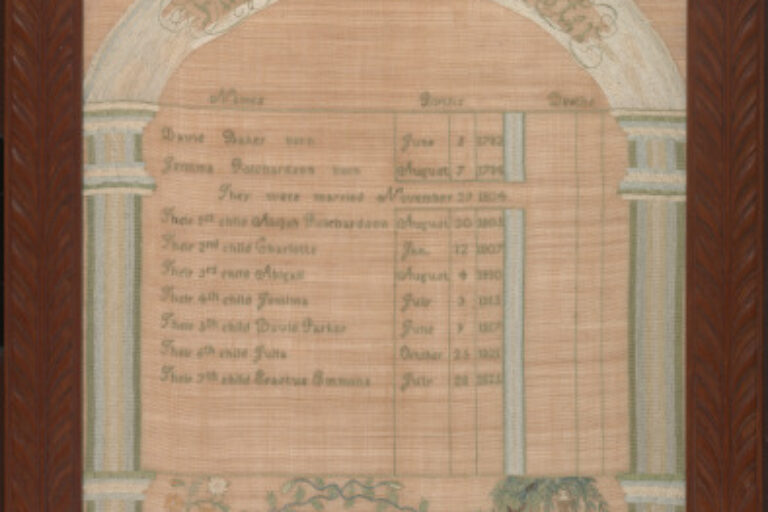 Names Births Deaths
David Baker born June 3 1782
Jemima Richardson born August 7 1784
They were married November 29 1804
Their 1st child Richardson August 30 1805
Their 2nd child Charlotte Jan. 12 1807
Their 3rd child Abigail August 4 1810
Their 4th child Jemima July 3 1813
Their 5th child David Parker June 9 1817
Their 6th child Julia October 25 1821
Their 7th child Erastus Emmons July 28 1825